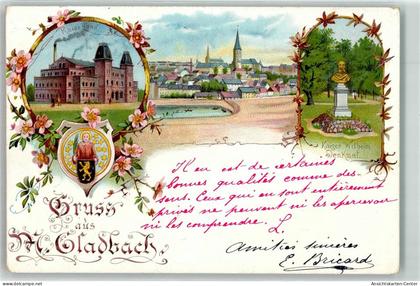 Kaiser Wilhelm
Denkmal.
Il en est de certaines
bonnes qualités comme des
sens. Ceux qui en sont entièrement
privés ne peuvent ni les apercevoir
ni les comprendre. L.
Gruss
aus
M. Gladbach.
Amitiés sincères
E. Bricard
www.ansichtskartenversand.com
Ansichtskarten-Center